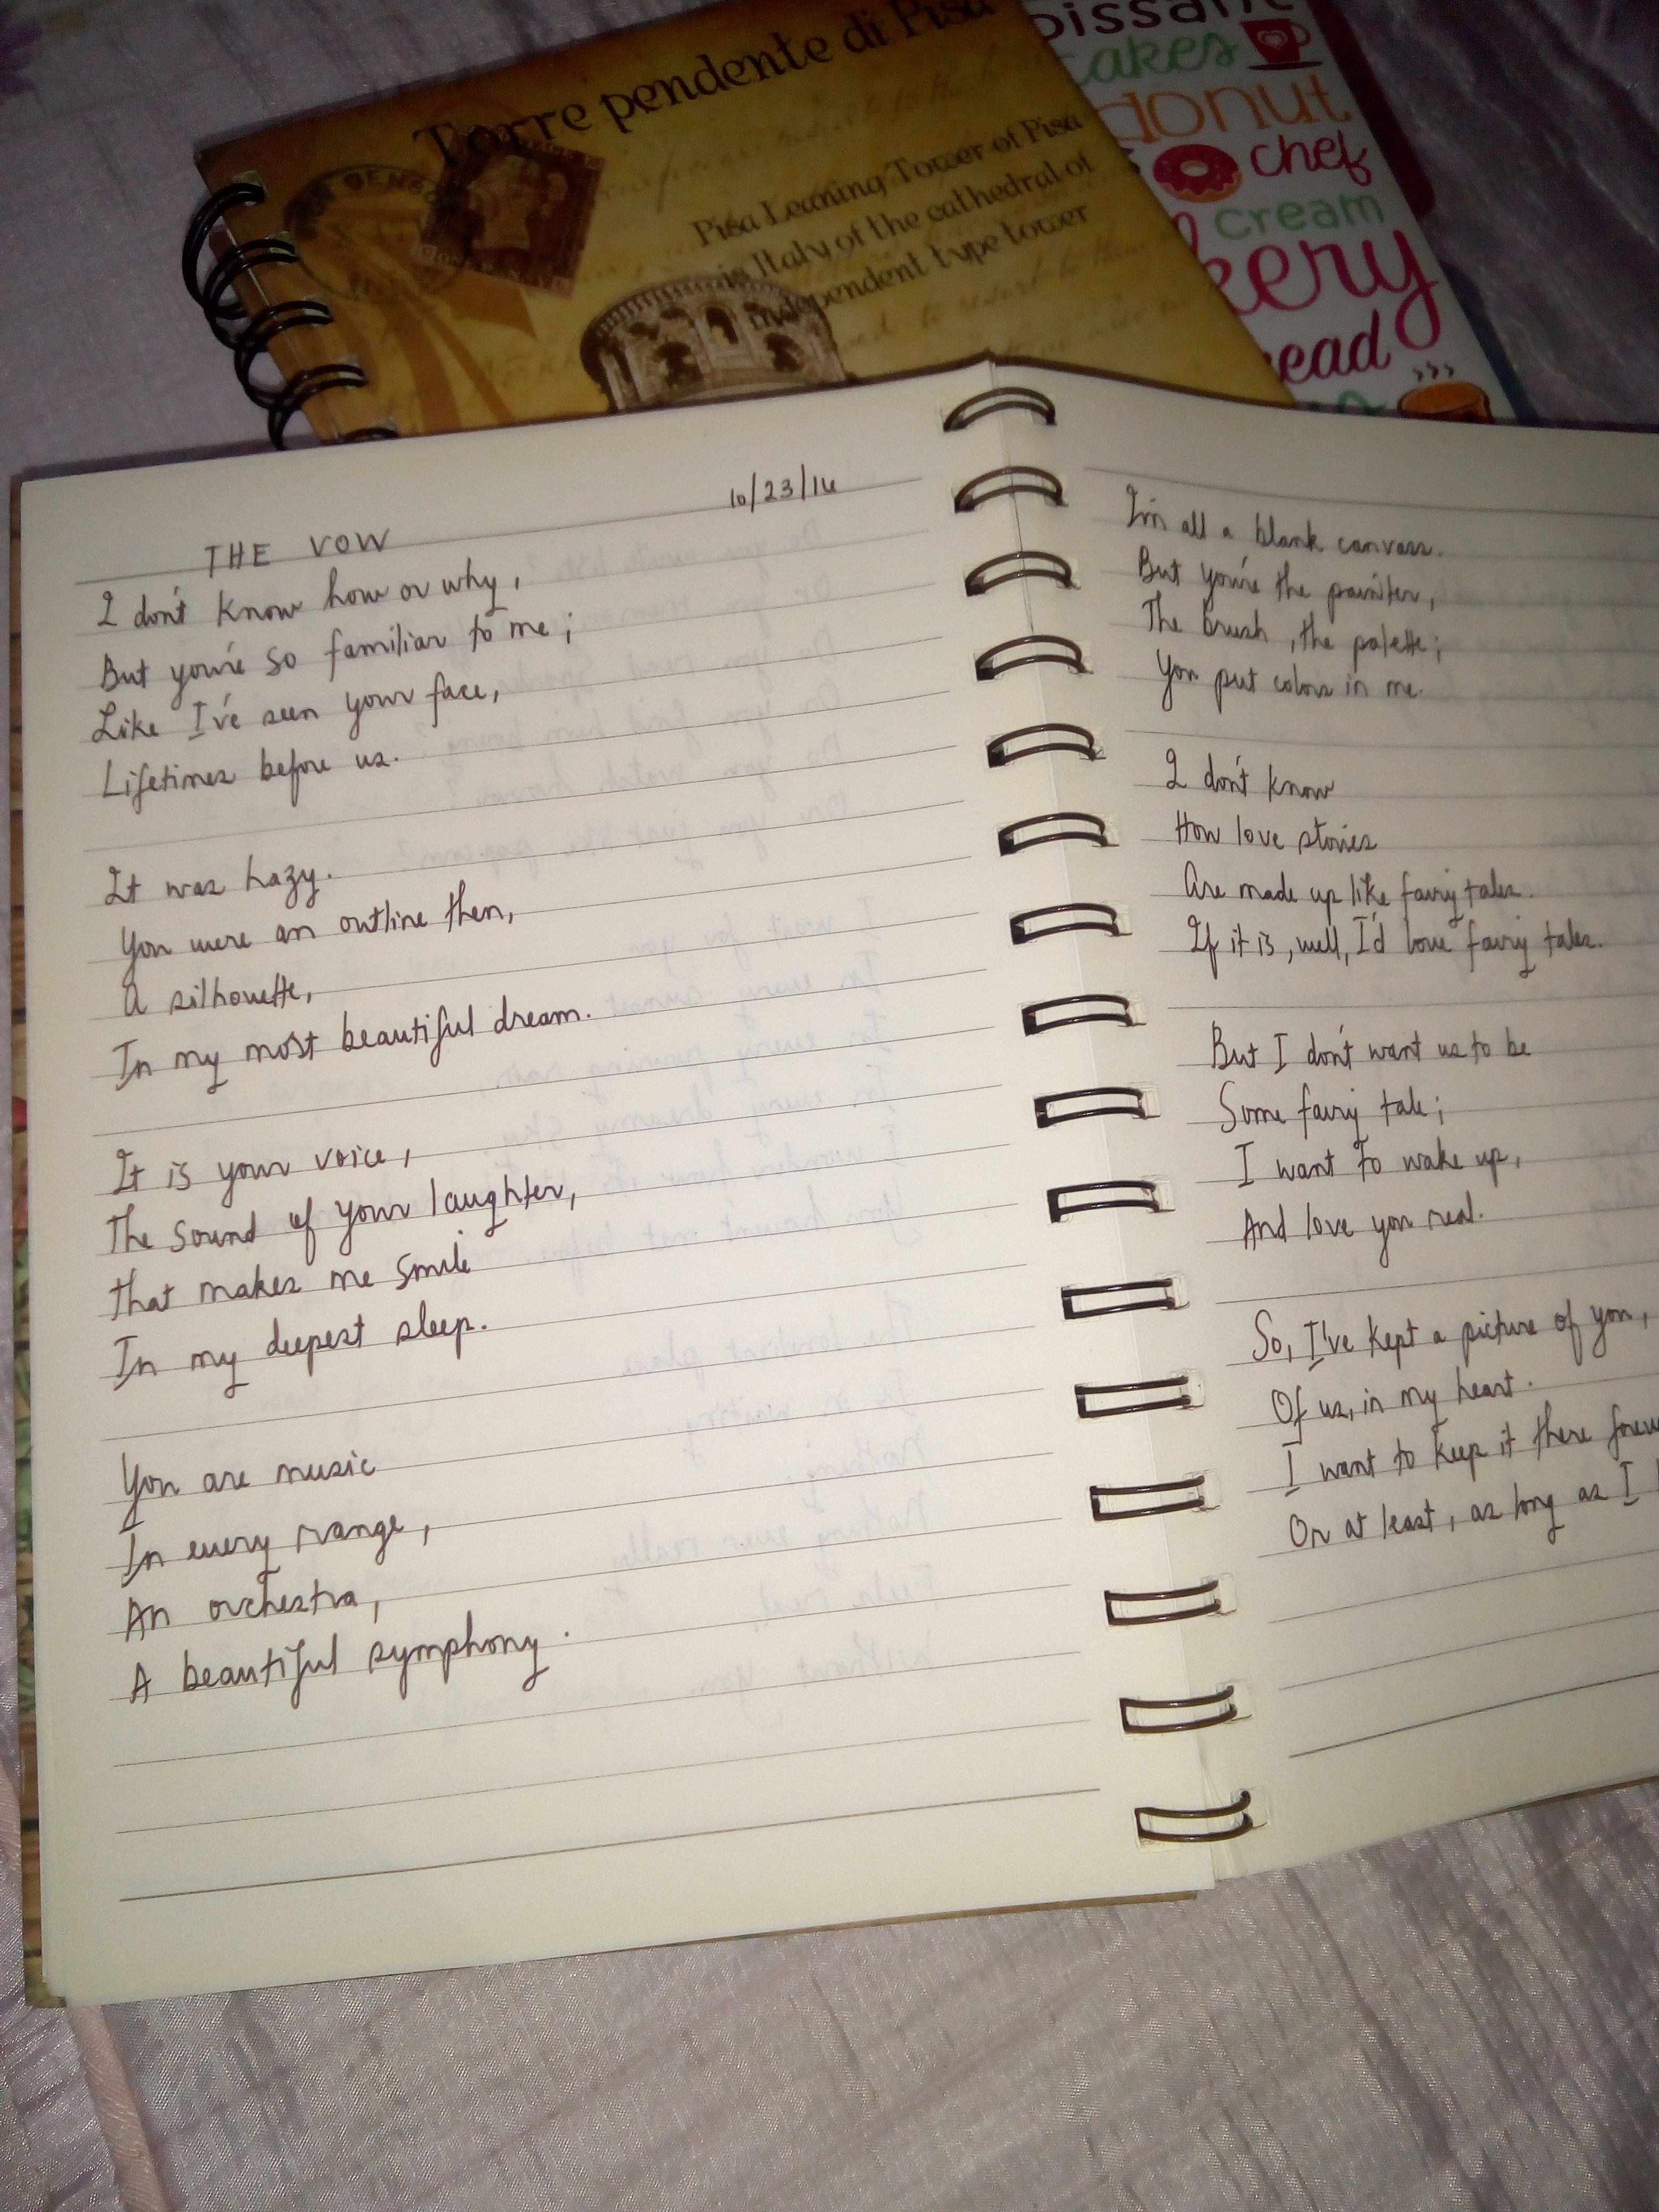 Torre pendente di Pisa
Pisa Leaning Tower of Pisa
is Italy of the cathedral of
independent type tower
cakes
donut
chef
cream
10/23/14
THE VOW
I don't know how or why,
But you're so familiar to me;
Like I've seen your face,
Lifetimes before us.
It was hazy.
You were an outline then,
A silhouette,
In my most beautiful dream.
It is your voice,
The sound of your laughter,
That makes me smile
In my deepest sleep.
You are music
In every range,
An orchestra,
A beautiful symphony.
I'm all a blank canvass.
But you're the painter,
The brush, the palette;
You put colors in me.
I don't know
How love stories
Are made up like fairy tales.
If it is, well, I'd love fairy tales.
But I don't want us to be
Some fairy tale;
I want to wake up,
And love you real.
So, I've kept a picture of you,
Of us, in my heart.
I want to keep it there
Or at least, as long as I